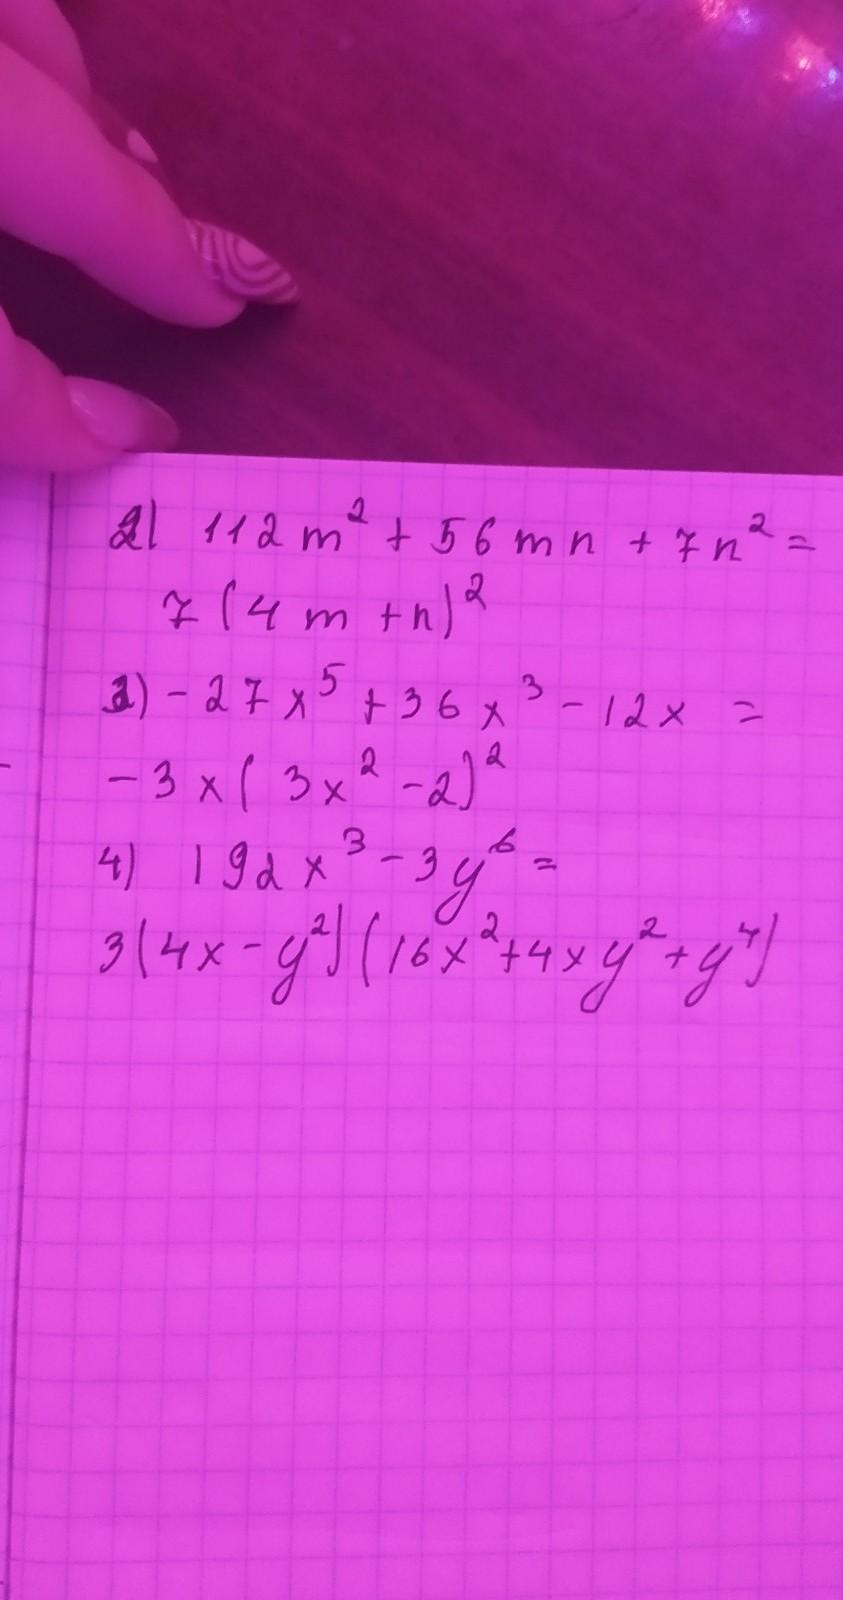 2) 112m² + 56mn + 7n² =
7(4m + n)²
3) -27x⁵ + 36x³ - 12x =
-3x(3x² - 2)²
4) 192x³ - 3y⁶ =
3(4x - y²)(16x² + 4xy² + y⁴)